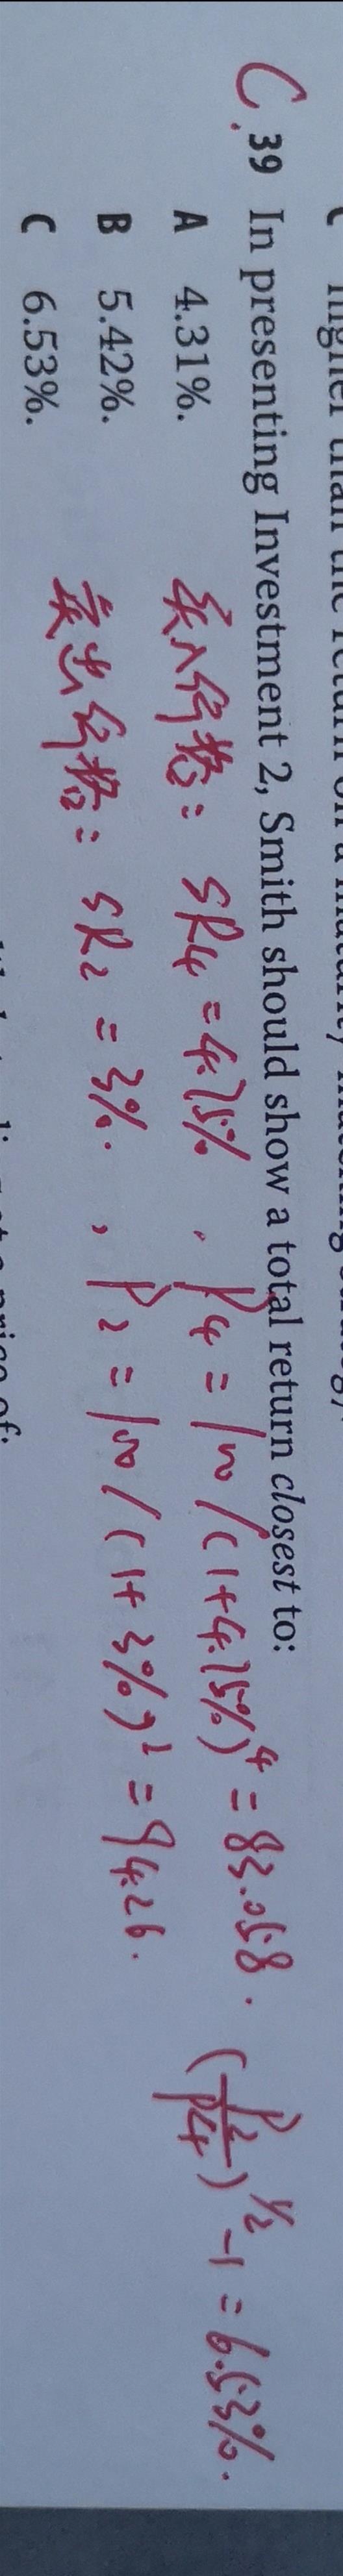 higher than the return on a maturity matching strategy.
C. 39 In presenting Investment 2, Smith should show a total return closest to:
A 4.31%. 买入价格: SR4 = 4.75%, P4 = 100/(1+4.75%)⁴ = 83.058. (P2/P4)^1/2 -1 = 6.53%.
B 5.42%.
卖出价格: SR2 = 3%, P2 = 100/(1+3%)² = 94.26.
C 6.53%.